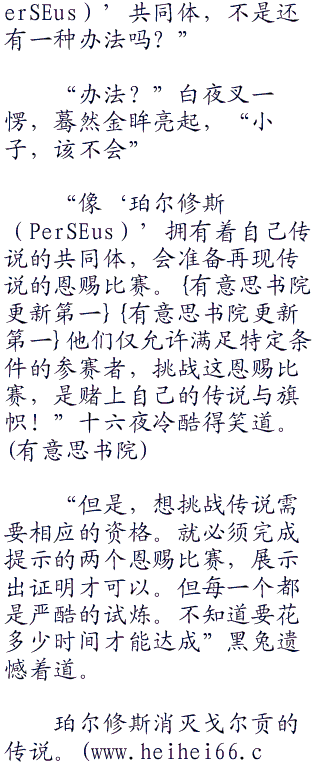 erSEus)’共同体，不是还
有一种办法吗？”
“办法？”白夜叉一
愣，蓦然金眸亮起，“小
子，该不会”
“像‘珀尔修斯
（PerSEus）’拥有着自己传
说的共同体，会准备再现传
说的恩赐比赛。{有意思书院
更新第一}{有意思书院更新
第一}他们仅允许满足特定条
件的参赛者，挑战这恩赐比
赛，是赌上自己的传说与旗
帜！”十六夜冷酷得笑道。
(有意思书院)
“但是，想挑战传说需
要相应的资格。就必须完成
提示的两个恩赐比赛，展示
出证明才可以。但每一个都
是严酷的试炼。不知道要花
多少时间才能达成”黑兔遗
憾着道。
珀尔修斯消灭戈尔贡的
传说。(www.heihei66.c